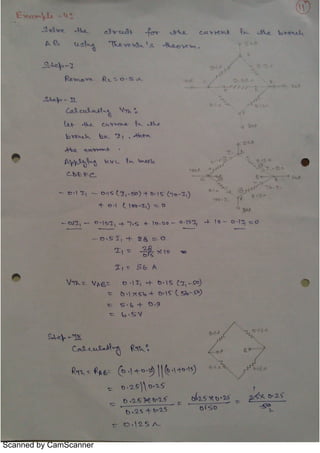 Example - 4:
Solve the circuit for the current in the branch
AB using Thevenin's theorem.
Step-I
Remove RL = 0.5Ω
Step-II
Calculating Vth:
let the current in the
branch be I1, then
the current
Applying KVL in mesh
CDEFC
- 0.1 I1 - 0.15 (I1-50) + 0.15 (70-I1)
+ 0.1 (100-I1) = 0
- 0.1I1 - 0.15I1 + 7.5 + 10.50 - 0.15I1 + 10 - 0.1I1 = 0
- 0.5I1 + 28 = 0
I1 = 28/0.5 × 10
I1 = 56 A
Vth = VAB = 0.1I1 + 0.15 (I1-50)
= 0.1×56 + 0.15 (56-50)
= 5.6 + 0.9
= 6.5V
Step-III
Calculating Rth:
Rth = RAB = (0.1+0.15)||(0.1+0.15)
= 0.25||0.25
= 0.25×0.25/0.25+0.25 = 0.25×0.25/0.50 = 25×0.25/50
= 0.125Ω
Scanned by CamScanner